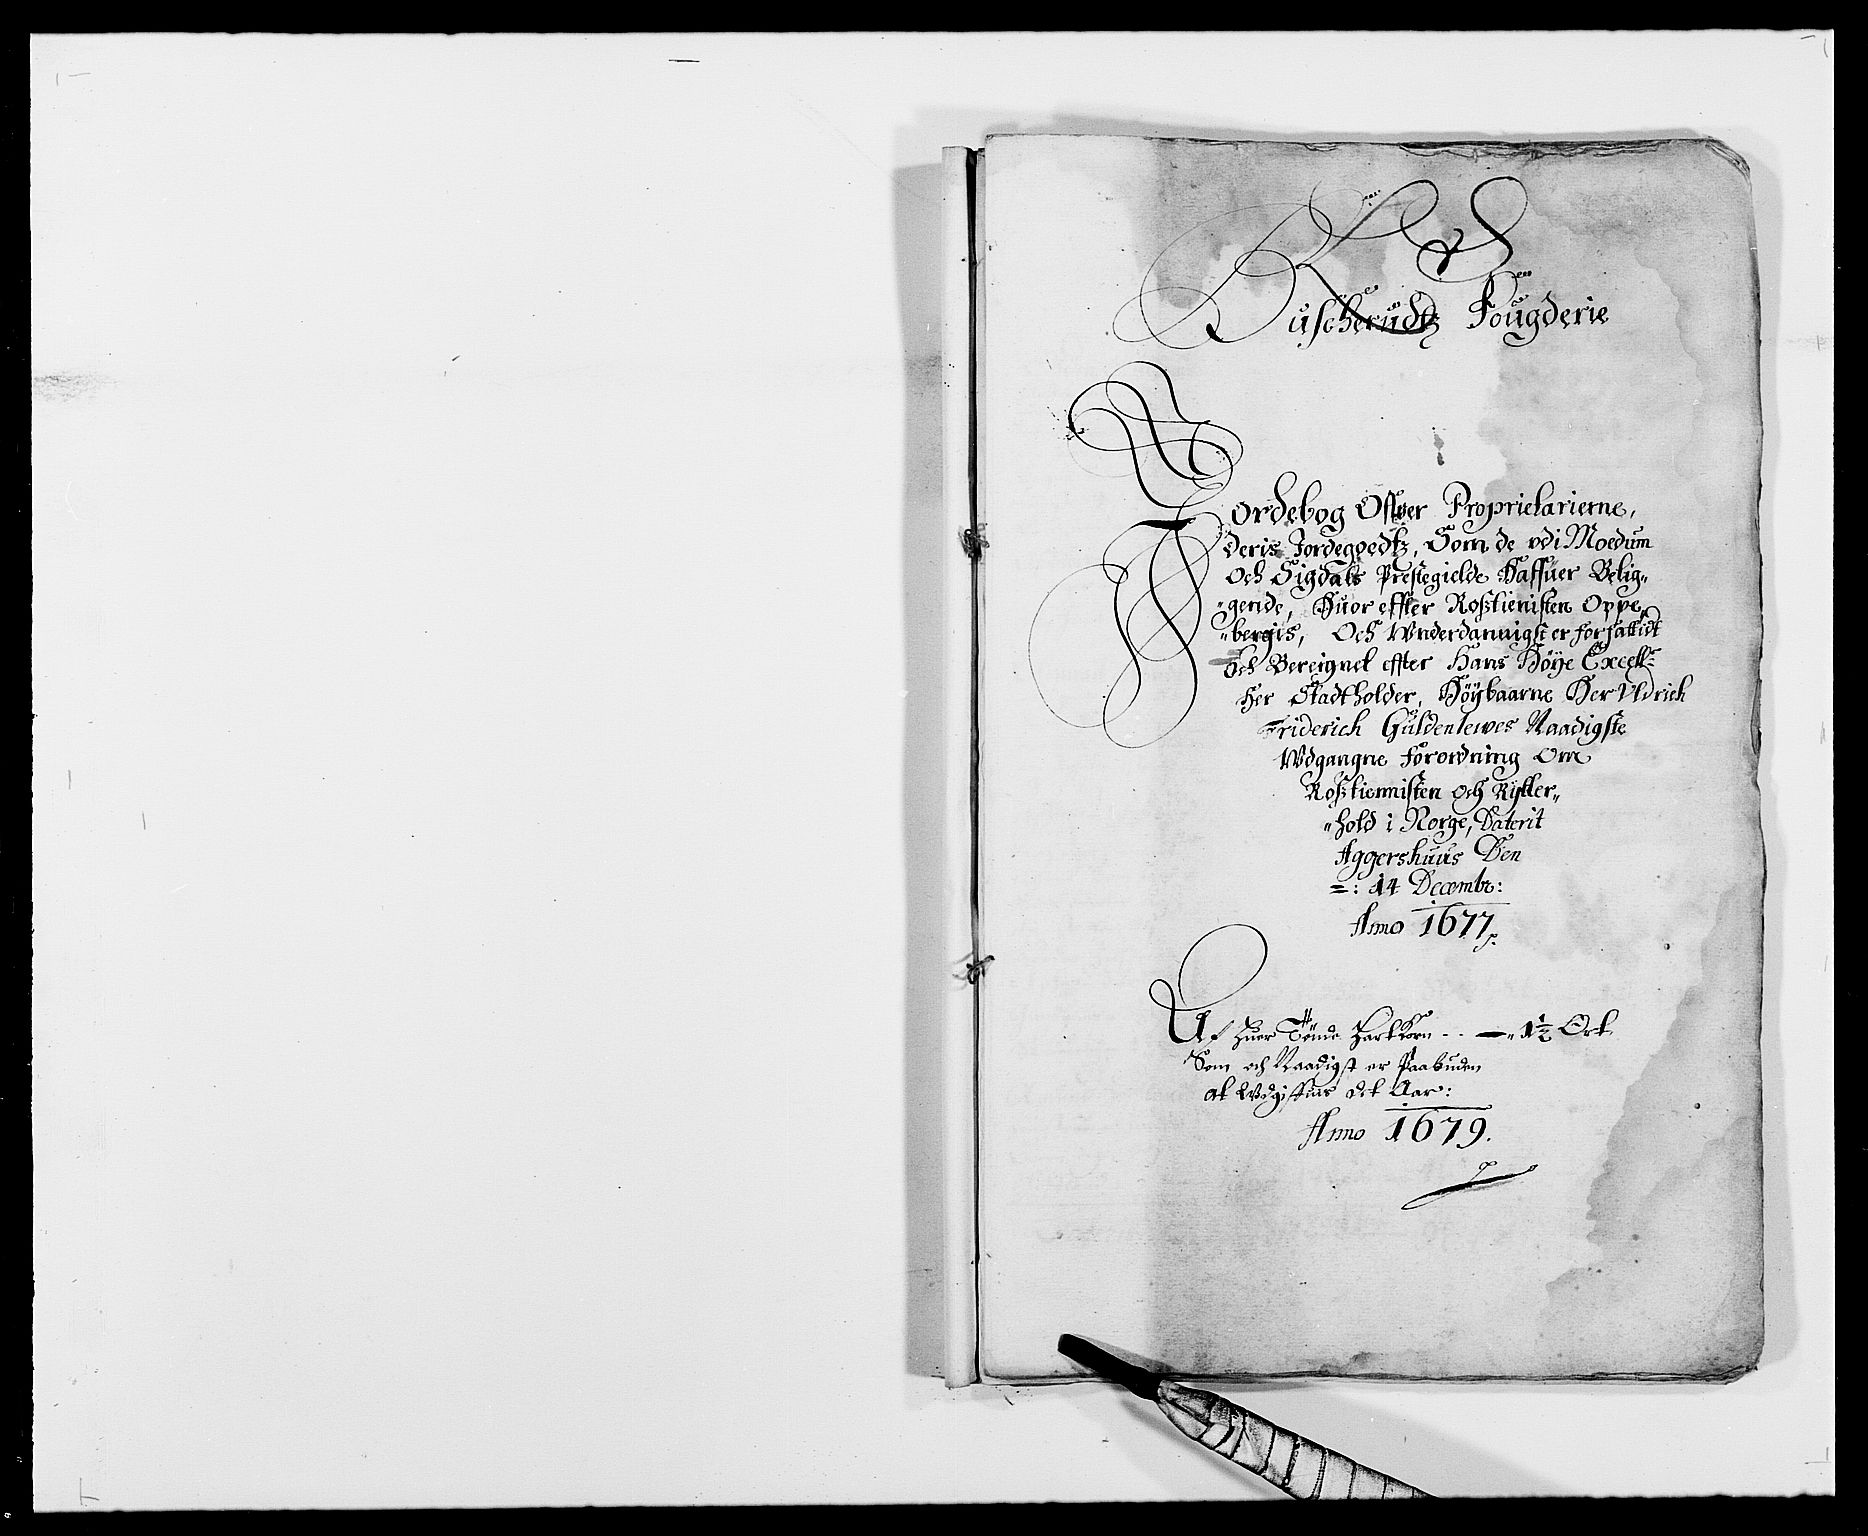 Buscherudtz Fougderie
Jordebog Offuer Proprietarierne,
deris Jordegoedtz, Som de udi Moedum
Och Sigdals Prestegielde Haffuer Belig„
„gende, Huor effter Rostienisten Oppe„
„bergis, Och Wnderdannigst er forfattidt
Och Bereignet effter Hans Höye Excell:
Her Stadtholder, Höybaarne Her Uldrich
Friderich Güldenlewes Naadigste
Wdgangne Forordning Om
Rostiennisten Och Rytter„
„hold i Norge, Daterit
Aggershuus Den
=: 14 Decembr:
Anno 1677.
Af huer Tönde Hartkorn - - — „ 1½ Ort
Som och Naadigst er Paabuden
at Wdgiffuis det Aar:
Anno 1679.